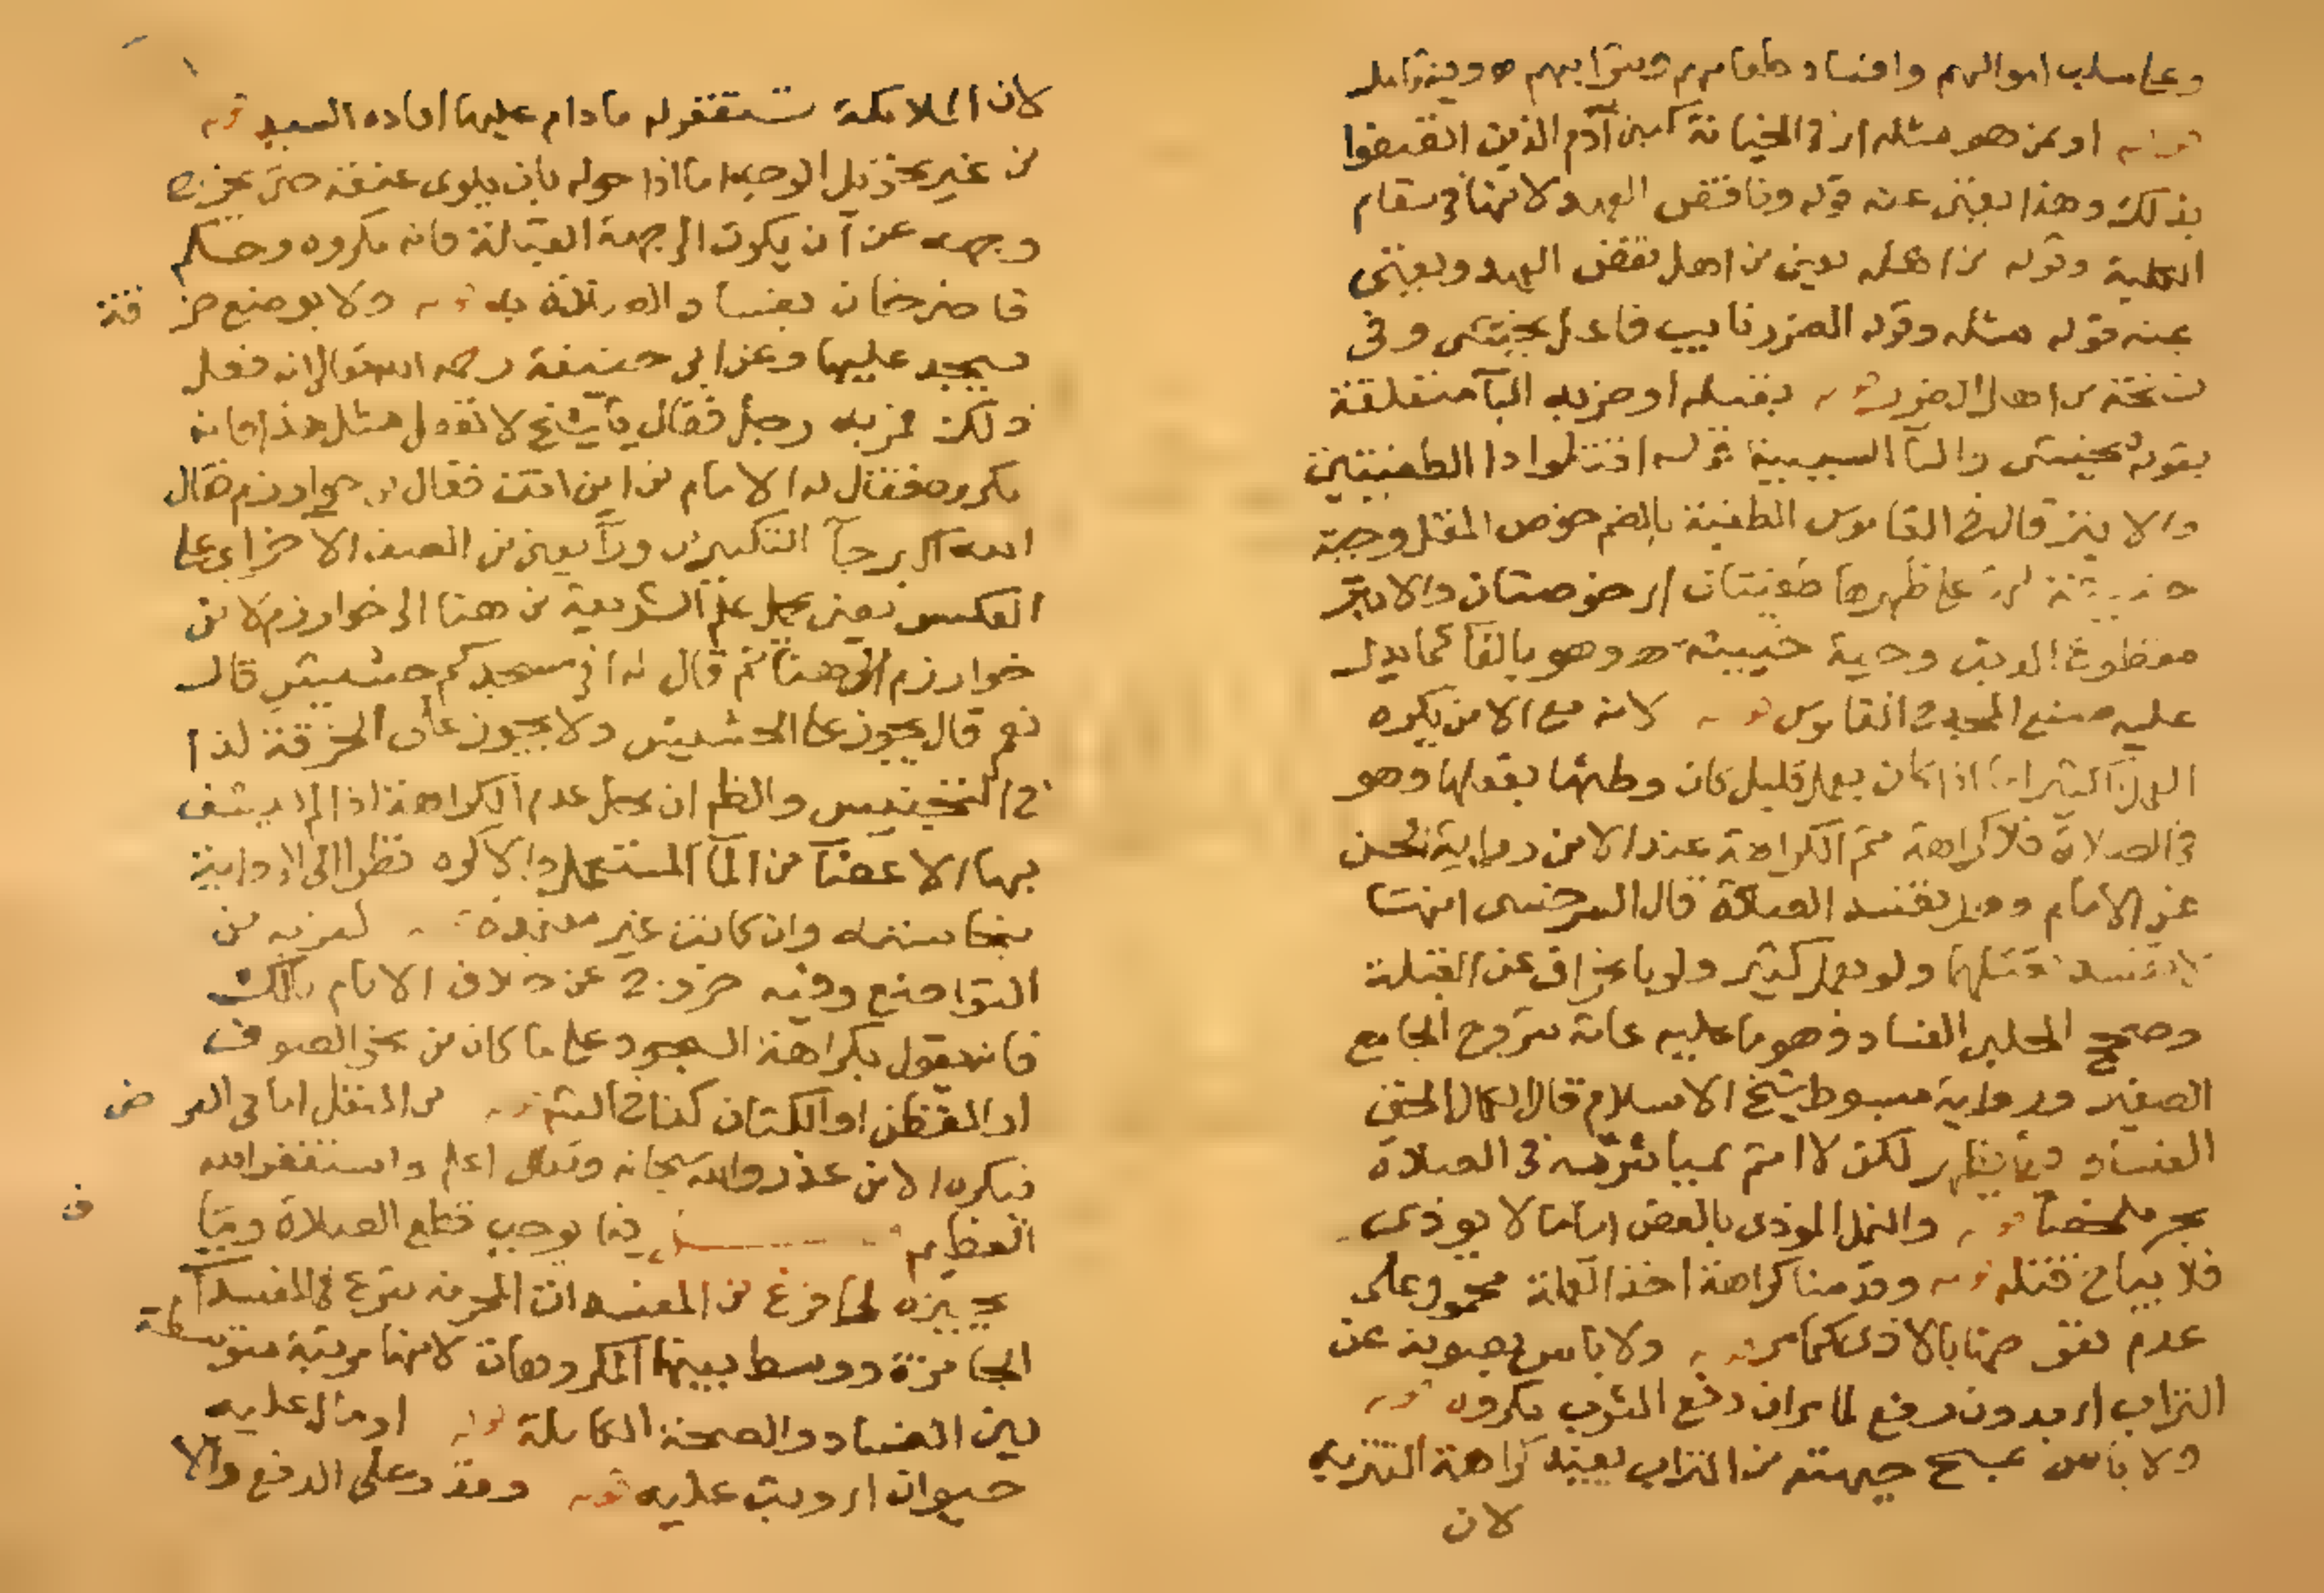 وعلى سلب اموالهم وافساد طعامهم وشرابهم ه وفيه تامل
قوله او بمن هو مثله اي في الخيانة كبني آدم الذين اتصفوا
بذلك وهذا يغني عنه قوله وناقض العهد لانها في مقام
العلية وقوله من اهله يعني من اهل نقض العهد ويغني
عنه قوله مثله وقوله الضرر نايب فاعل يخشى وفي
نسخة من اهل الضرر قوله بقتله او ضربه البآ متعلقة
بقوله يخشى والبآ السببية قوله اقتلوا ذا الطفيتين
والابتر قال في القاموس الطفية بالضم خوص المقل وحية
خبيثة لها على ظهرها طفيتان اي خوصتان والابتر
مقطوع الذنب وحية خبيثة ه وهو بالفآ كما يدل
عليه صنع المجد في القاموس قوله لانه مع الامن يكره
العمل الكثير اما اذا كان بعمل قليل كان وطئها بنعلها وهو
في الصلاة فلا كراهة ثم الكراهة عند الامن رواية الحسن
عن الامام وهل تفسد الصلاة قال السرخسي انها
لا تفسد بقتلها ولو بعمل كثير ولو بانحراف عن القبلة
وصحح الحلبي الفساد وهو ما عليه عامة شروح الجامع
الصغير ورواية مبسوط شيخ الاسلام قال الكمال الحق
الفساد فيما يظهر لكن لا اثم بمباشرته في الصلاة
بحر ملخصا قوله والنمل الموذي بالعض اما ما لا يوذي
فلا يباح قتله قوله وقدمنا كراهة اخذ القملة محمول على
عدم تعرضها بالاذى كما مر قوله ولا باس بصونه عن
التراب اي بدون رفع لما مر ان رفع الثوب مكروه قوله
ولا باس بمسح جبهته من التراب يفيد كراهة التنزيه
لان
لان الملائكة تستغفر له ما دام عليها افاده السيد قوله
من غير تحويل الوجه اما اذا حوله بان يلوي عنقه حتى يخرج
وجهه عن ان يكون الى جهة القبلة فانه مكروه وحكم
قاضيخان بفساد الصلاة به قوله ولا بوضع خرقة
يسجد عليها وعن ابي حنيفة رحمه الله تعالى انه فعل
ذلك فمر به رجل فقال يا شيخ لا تفعل مثل هذا فانه
مكروه فقال له الامام من اين انت فقال من خوارزم فقال
الله اكبر جآ التكبير من ورآ يعني من الصف الاخر اي على
العكس يعني يحمل علم الشريعة من هنا الى خوارزم لا من
خوارزم الى هنا ثم قال له افي مسجدكم حشيش قال
نعم قال يجوز على الحشيش ولا يجوز على الخرقة كذا
في التجنيس والظاهر ان محل عدم الكراهة اذا لم ينشف
بها الاعضآ من المآ المستعمل والا كره نظرا الى رواية
نجاسته وان كانت غير معتمدة قوله لقربه من
التواضع وفيه خروج عن خلاف الامام مالك
فانه يقول بكراهة السجود على ما كان من نحو الصوف
او القطن او الكتان كذا في الشرح قوله من النفل اما في الفرض
فيكره الا من عذر والله سبحانه وتعالى اعلم واستغفر الله
العظيم فصل فيما يوجب قطع الصلاة وما
يجيزه لما فرغ من المفسدات المحرمة شرع في المفسدات
الجائزة ووسط بينها المكروهات لانها مرتبة متوسطة
بين الفساد والصحة الكاملة قوله او صال عليه
حيوان اي وثب عليه قوله وقدر على الدفع والا